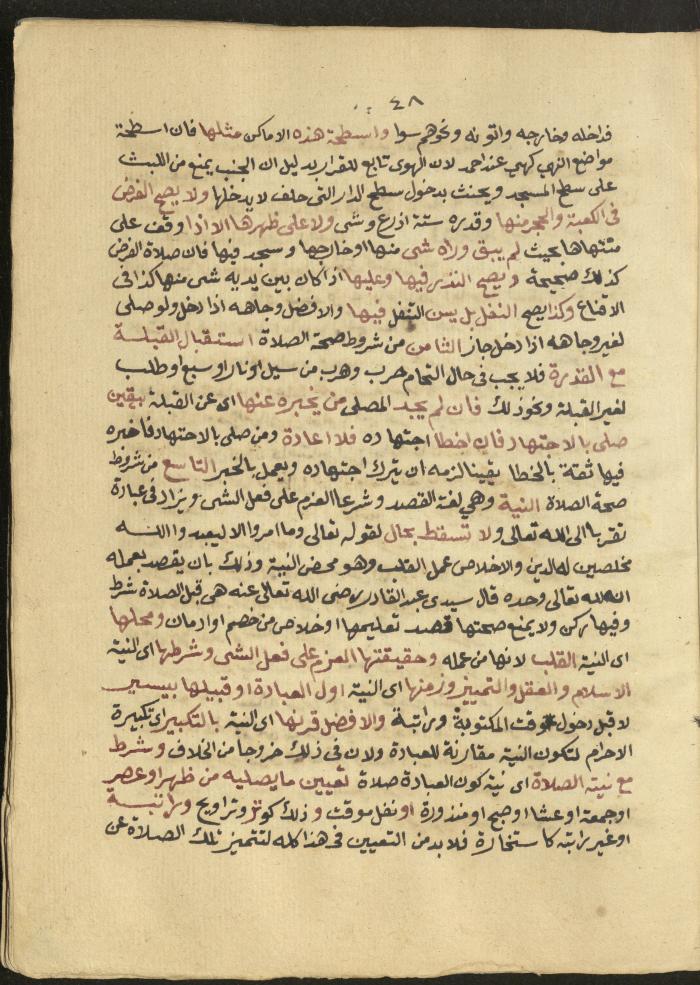 ٤٨
فداخله وخارجه واتونه ونحوهم سوا واسطحة هذه الاماكن مثلها فان اسطحة
مواضع النهي كهي عند احمد لان الهوى تابع للقرار بدليل ان الجنب يمنع من اللبث
على سطح المسجد ويحنث بدخول سطح الدار التى حلف لا يدخلها ولا يصح الفرض
فى الكعبة والحجر منها وقدره ستة اذرع وشى ولا على ظهرها الا اذا وقف على
منتهاها بحيث لم يبق وراه شى منها او خارجها وسجد فيها فان صلاة الفرض
كذلك صحيحة ويصح النذر فيها وعليها اذا كان بين يديه شى منها كذا فى
الاقناع وكذا يصح النفل بل يسن التنفل فيها والافضل وجاهه اذا دخل ولو صلى
لغير وجاهه اذا دخل جاز الثامن من شروط صحة الصلاة استقبال القبلة
مع القدرة فلا يجب فى حال التحام حرب وهرب من سيل او نار او سبع او طلب
لغير القبلة ونحو ذلك فان لم يجد المصلى من يخبره عنها اى عن القبلة بيقين
صلى بالاجتهاد فان اخطا اجتهاده فلا اعادة ومن صلى بالاجتهاد فاخبره
فيها ثقة بالخطا يقينا لزمه ان يترك اجتهاده ويعمل بالخبر التاسع من شروط
صحة الصلاة النية وهي لغة القصد وشرعا العزم على فعل الشى ويزاد فى عبادة
تقربا الى الله تعالى ولا تسقط بحال لقوله تعالى وما امروا الا ليعبدوا الله
مخلصين له الدين والاخلاص عمل القلب وهو محض النية وذلك بان يقصد بعمله
انه لله تعالى وحده قال سيدى عبد القادر رضى الله تعالى عنه هى قبل الصلاة شرط
وفيها ركن ولا يمنع صحتها قصد تعليمها او خلاص من خصم او ادمان ومحلها
اى النية القلب لانها من عمله وحقيقتها العزم على فعل الشى وشرطها اى النية
الاسلام والعقل والتمييز وزمنها اى النية اول العبادة او قبيلها بيسير
لا قبل دخول وقت المكتوبة وراتبة والافضل قرنها اى النية بالتكبير اى تكبيرة
الاحرام لتكون النية مقارنة للعبادة ولان فى ذلك خروجا من الخلاف وشرط
مع نية الصلاة اى نية كون العبادة صلاة تعيين ما يصليه من ظهر او عصر
او جمعة او عشا او صبح او منذورة او نفل موقت وذلك كوتر وتراويح وراتبة
او غير راتبة كاستخارة فلا بد من التعيين فى هذا كله لتتميز تلك الصلاة عن